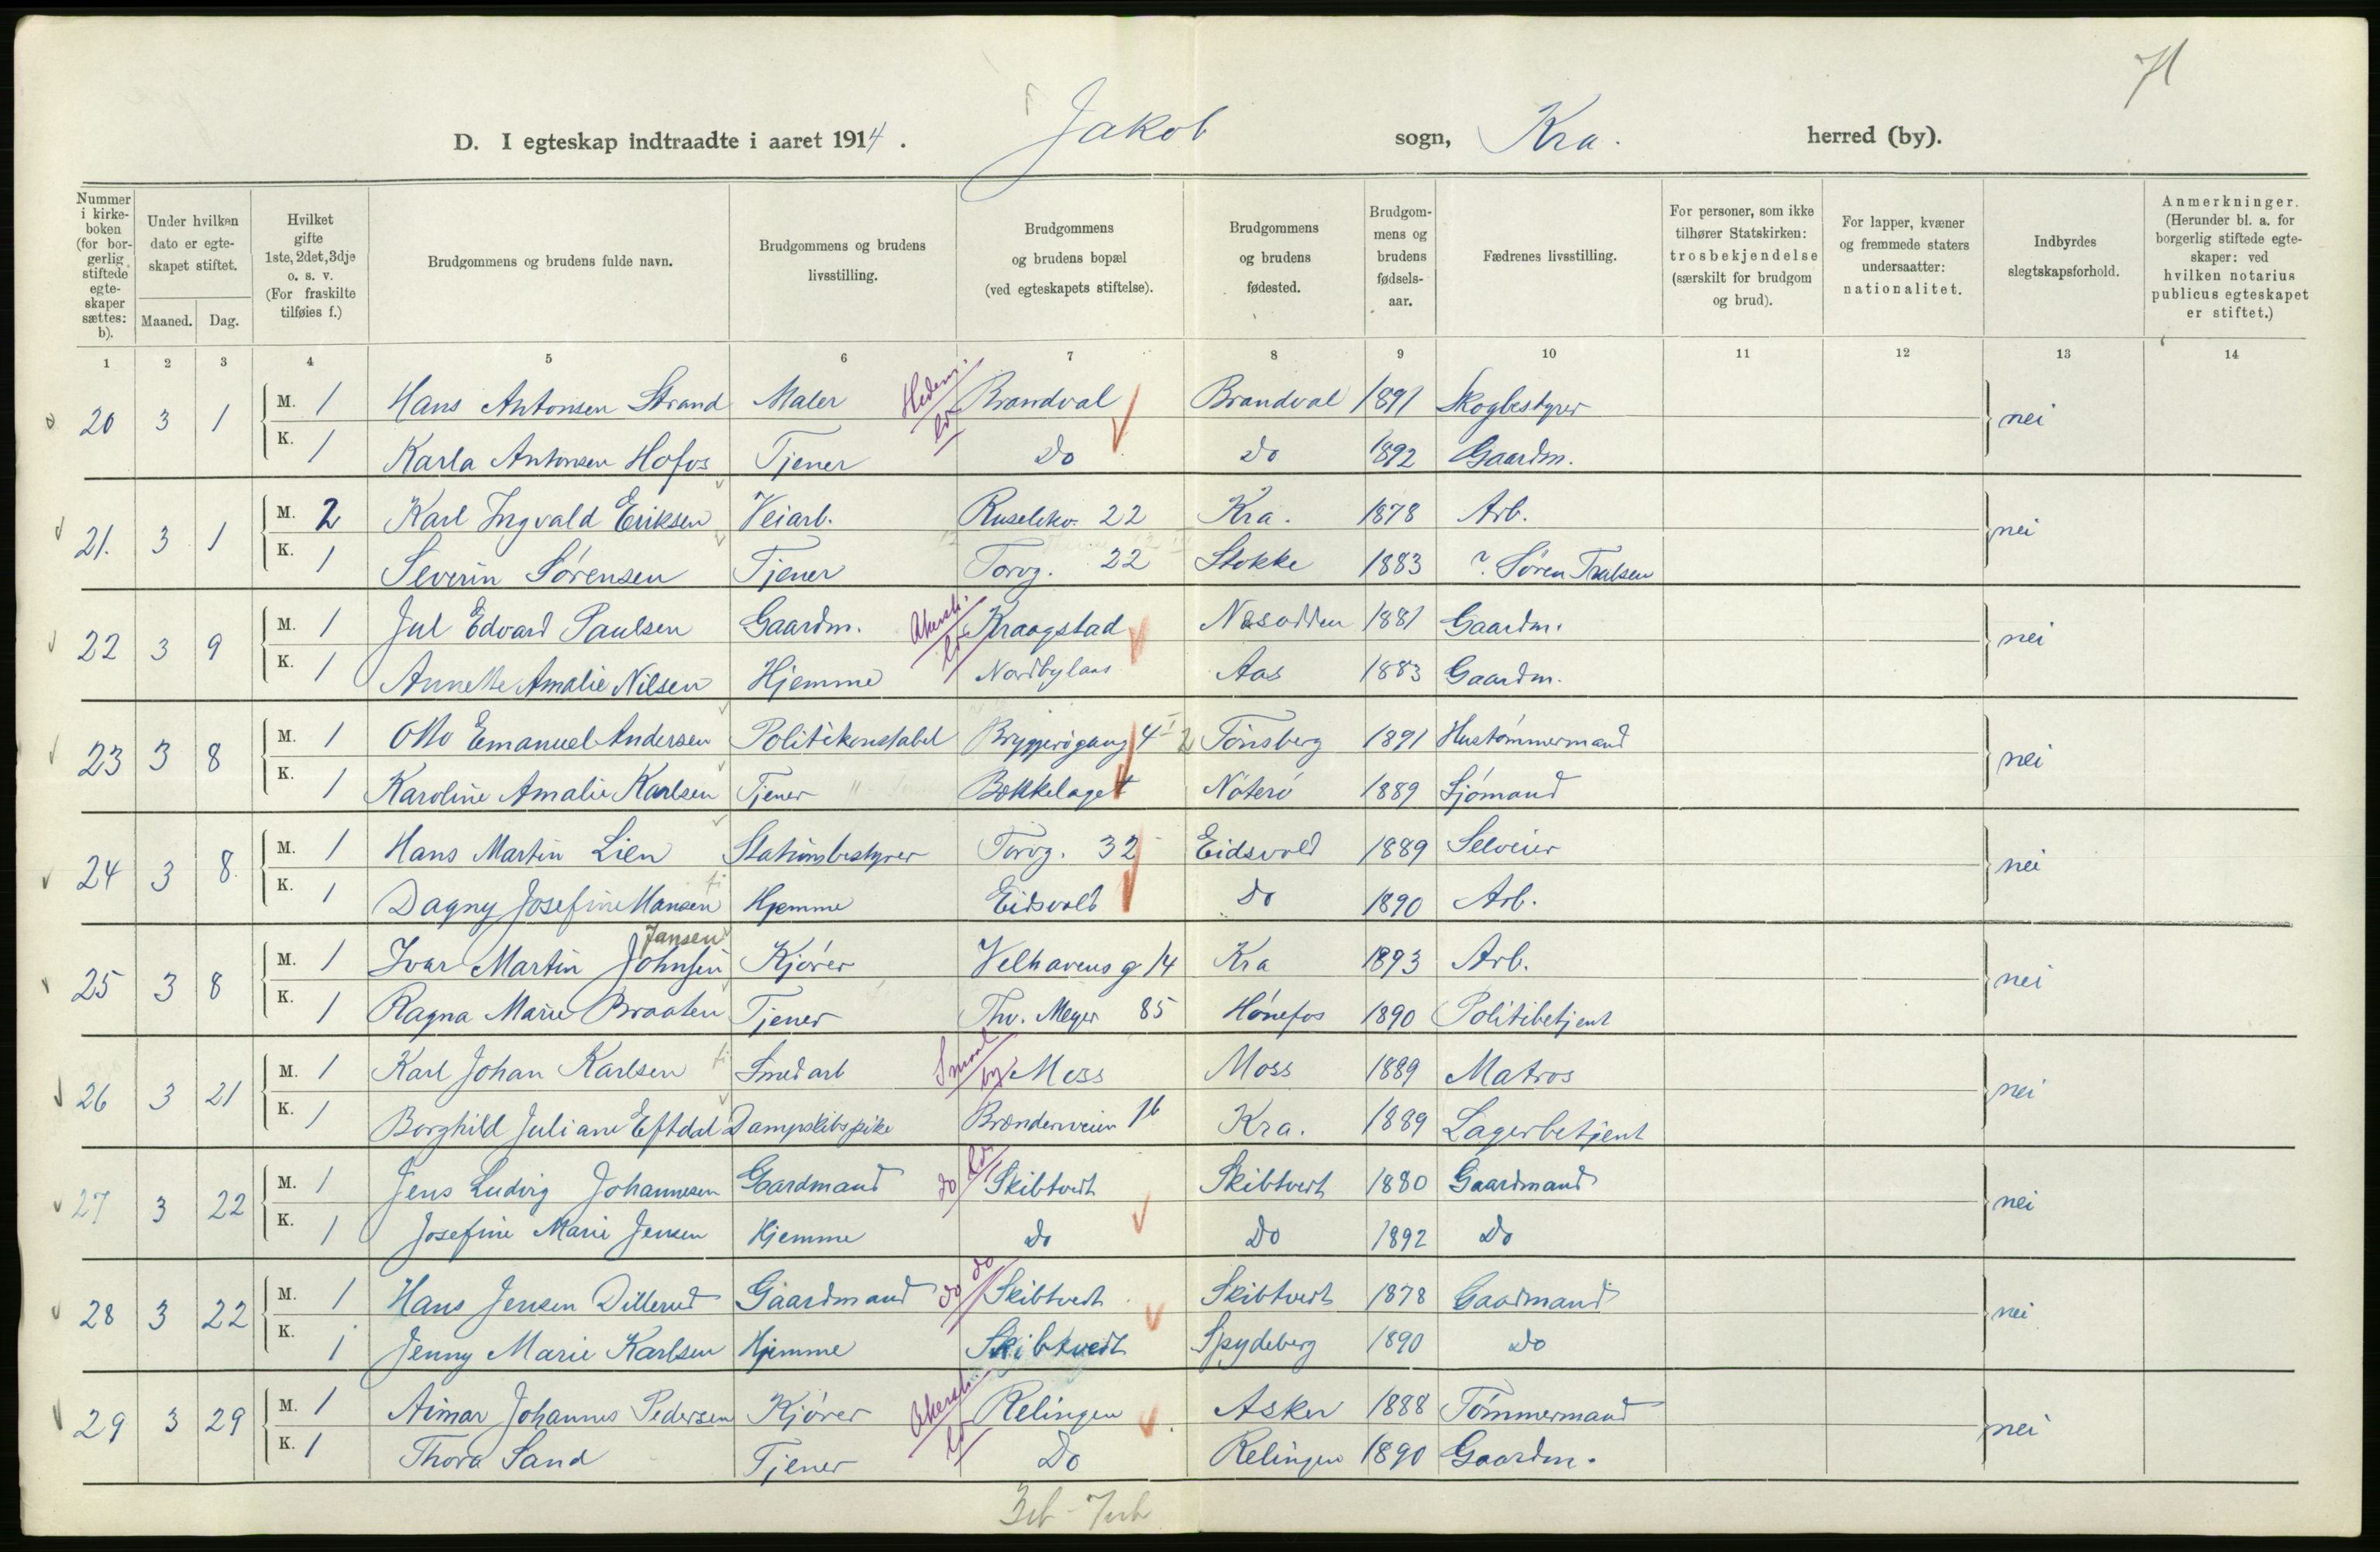 71
D. I egteskap indtraadte i aaret 1914. Jakob sogn, Kra. herred (by).
Nummer i kirke-boken (for bor-gerlig stiftede egte-skaper sættes: b).
Under hvilken dato er egte-skapet stiftet.
Maaned. Dag.
Hvilket gifte 1ste, 2det, 3dje o. s. v. (For fraskilte tilføies f.)
Brudgommens og brudens fulde navn.
Brudgommens og brudens livsstilling.
Brudgommens og brudens bopæl (ved egteskapets stiftelse).
Brudgommens og brudens fødested.
Brudgom-mens og brudens fødsels-aar.
Fædrenes livsstilling.
For personer, som ikke tilhører Statskirken: trosbekjendelse (særskilt for brudgom og brud).
For lapper, kvæner og fremmede staters undersaatter: nationalitet.
Indbyrdes slegtskapsforhold.
Anmerkninger. (Herunder bl. a. for borgerlig stiftede egte-skaper: ved hvilken notarius publicus egteskapet er stiftet.)
1 2 3 4 5 6 7 8 9 10 11 12 13 14
20 3 1 M. 1 Hans Antonsen Strand Maler Hedem. Brandval Brandval 1891 Skogbestyrer nei
K. 1 Karla Antonsen Hofos Tjener Do Do 1892 Gaardm.
21. 3 1 M. 2 Karl Ingvald Eriksen Veiarb. Ruseløkv. 22 Kra. 1878 Arb. nei
K. 1 Severin Sørensen Tjener Torvg. 22 Stokke 1883 ? Søren Tralsen
22 3 9 M. 1 Jul Edvard Paulsen Gaardm. Akersh. Kraagstad Nesodden 1881 Gaardm. nei
K. 1 Annette Amalie Nilsen Hjemme Nordbylaas Aas 1883 Gaardm.
23 3 8 M. 1 Otto Emanuel Andersen Politikonstabel Bryggerigang 4 Tønsberg 1891 Hustømmermand nei
K. 1 Karoline Amalie Karlsen Tjener Bækkelaget Nøterø 1889 Sjømand
24 3 8 M. 1 Hans Martin Lien Stationsbestyrer Torvg. 32 Eidsvold 1889 Selveier nei
K. 1 Dagny Josefine Hansen Hjemme Eidsvold Do 1890 Arb.
Jansen
25 3 8 M. 1 Ivar Martin Johnsen Kjører Velhavens g 14 Kra 1893 Arb. nei
K. 1 Ragna Marie Braaten Tjener Thv. Meyer 85 Hønefos 1890 Politibetjent
26 3 21 M. 1 Karl Johan Karlsen Smedarb Smaal by Moss Moss 1889 Matros nei
K. 1 Borghild Juliane Eftdal Dampskibspike Brænderiveien 16 Kra. 1889 Lagerbetjent
27 3 22 M. 1 Jens Ludvig Johannesen Gardmand do Skibtvedt Skibtvedt 1880 Gaardmand nei
K. 1 Josefine Marie Jensen Hjemme Do Do 1892 Do
28 3 22 M. 1 Hans Jensen Dillerud Gaardmand do do Skibtvedt Skibtvedt 1878 Gaardmand nei
K. 1 Jenny Marie Karlsen Hjemme Skibtvedt Spydeberg 1890 Do
29 3 29 M. 1 Aimar Johannes Pedersen Kjører Akersh. Relingen Asker 1888 Tømmermand nei
K. 1 Thora Sand Tjener Do Relingen 1890 Gaardm.